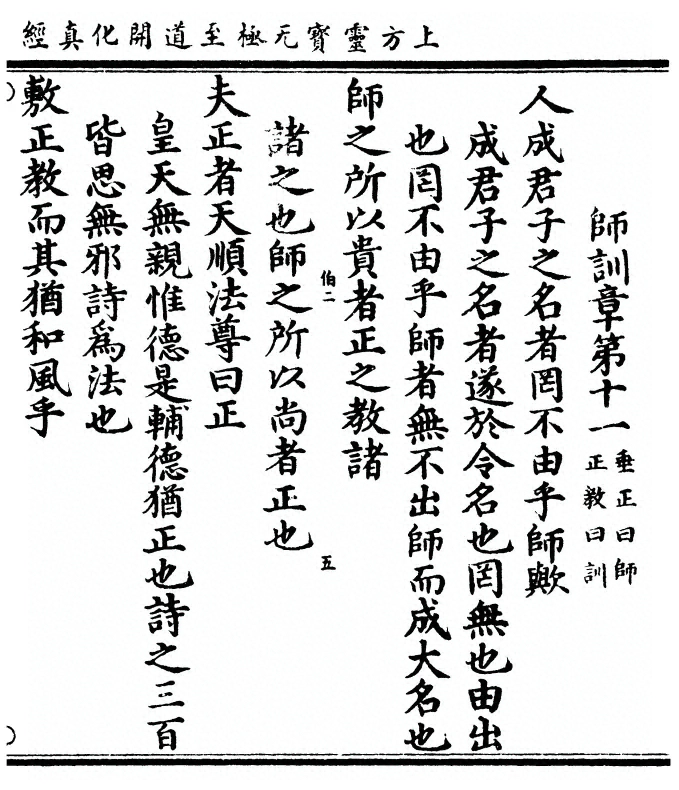 上方靈寶无極至道開化真經
師訓章第十一
垂正曰師
正教曰訓
人成君子之名者罔不由乎師歟
成君子之名者遂於令名也罔無也由出
也罔不由乎師者無不出師而成大名也
師之所以貴者正之教諸
伯二
五
諸之也師之所以尚者正也
夫正者天順法尊曰正
皇天無親惟德是輔德猶正也詩之三百
皆思無邪詩爲法也
敷正教而其猶和風乎